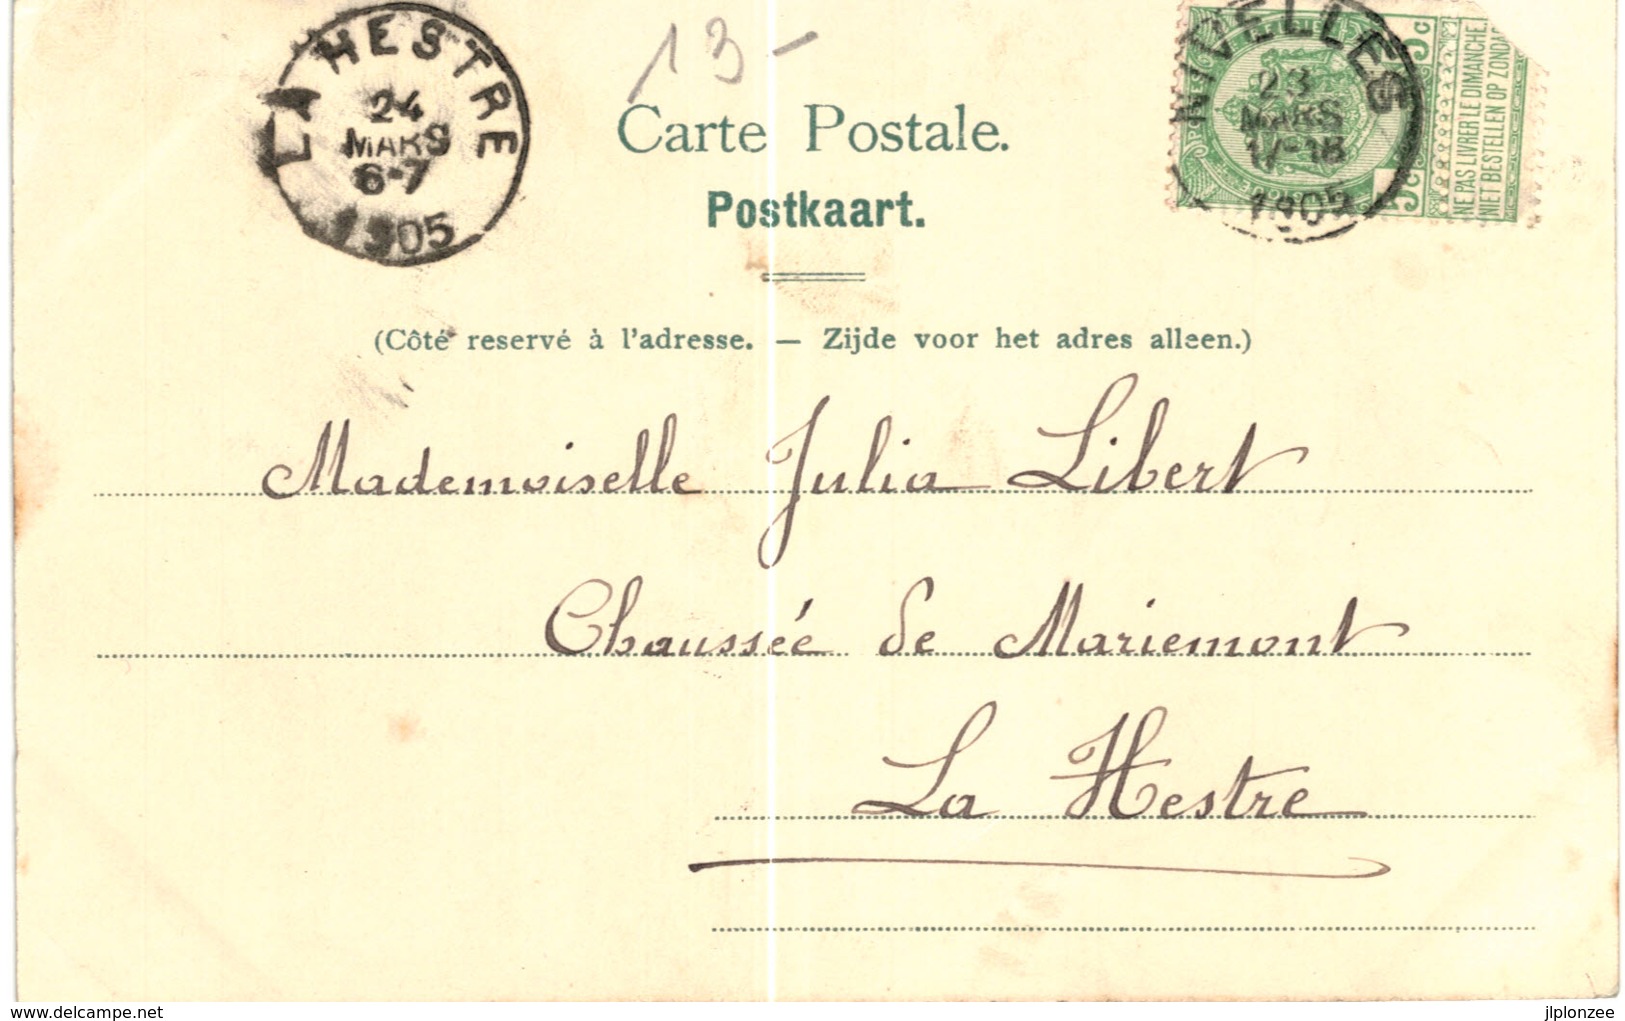 LA HESTRE
24
MARS
6-7
1905
13 -
NIVELLES
23
MARS
17-18
1905
5c
5c
NE PAS LIVRER LE DIMANCHE.
NIET BESTELLEN OP ZONDAG
Carte Postale.
Postkaart.
(Côté reservé à l'adresse. — Zijde voor het adres alleen.)
Mademoiselle Julia Libert
Chaussée de Mariemont
La Hestre
www.delcampe.net
jlplonzee